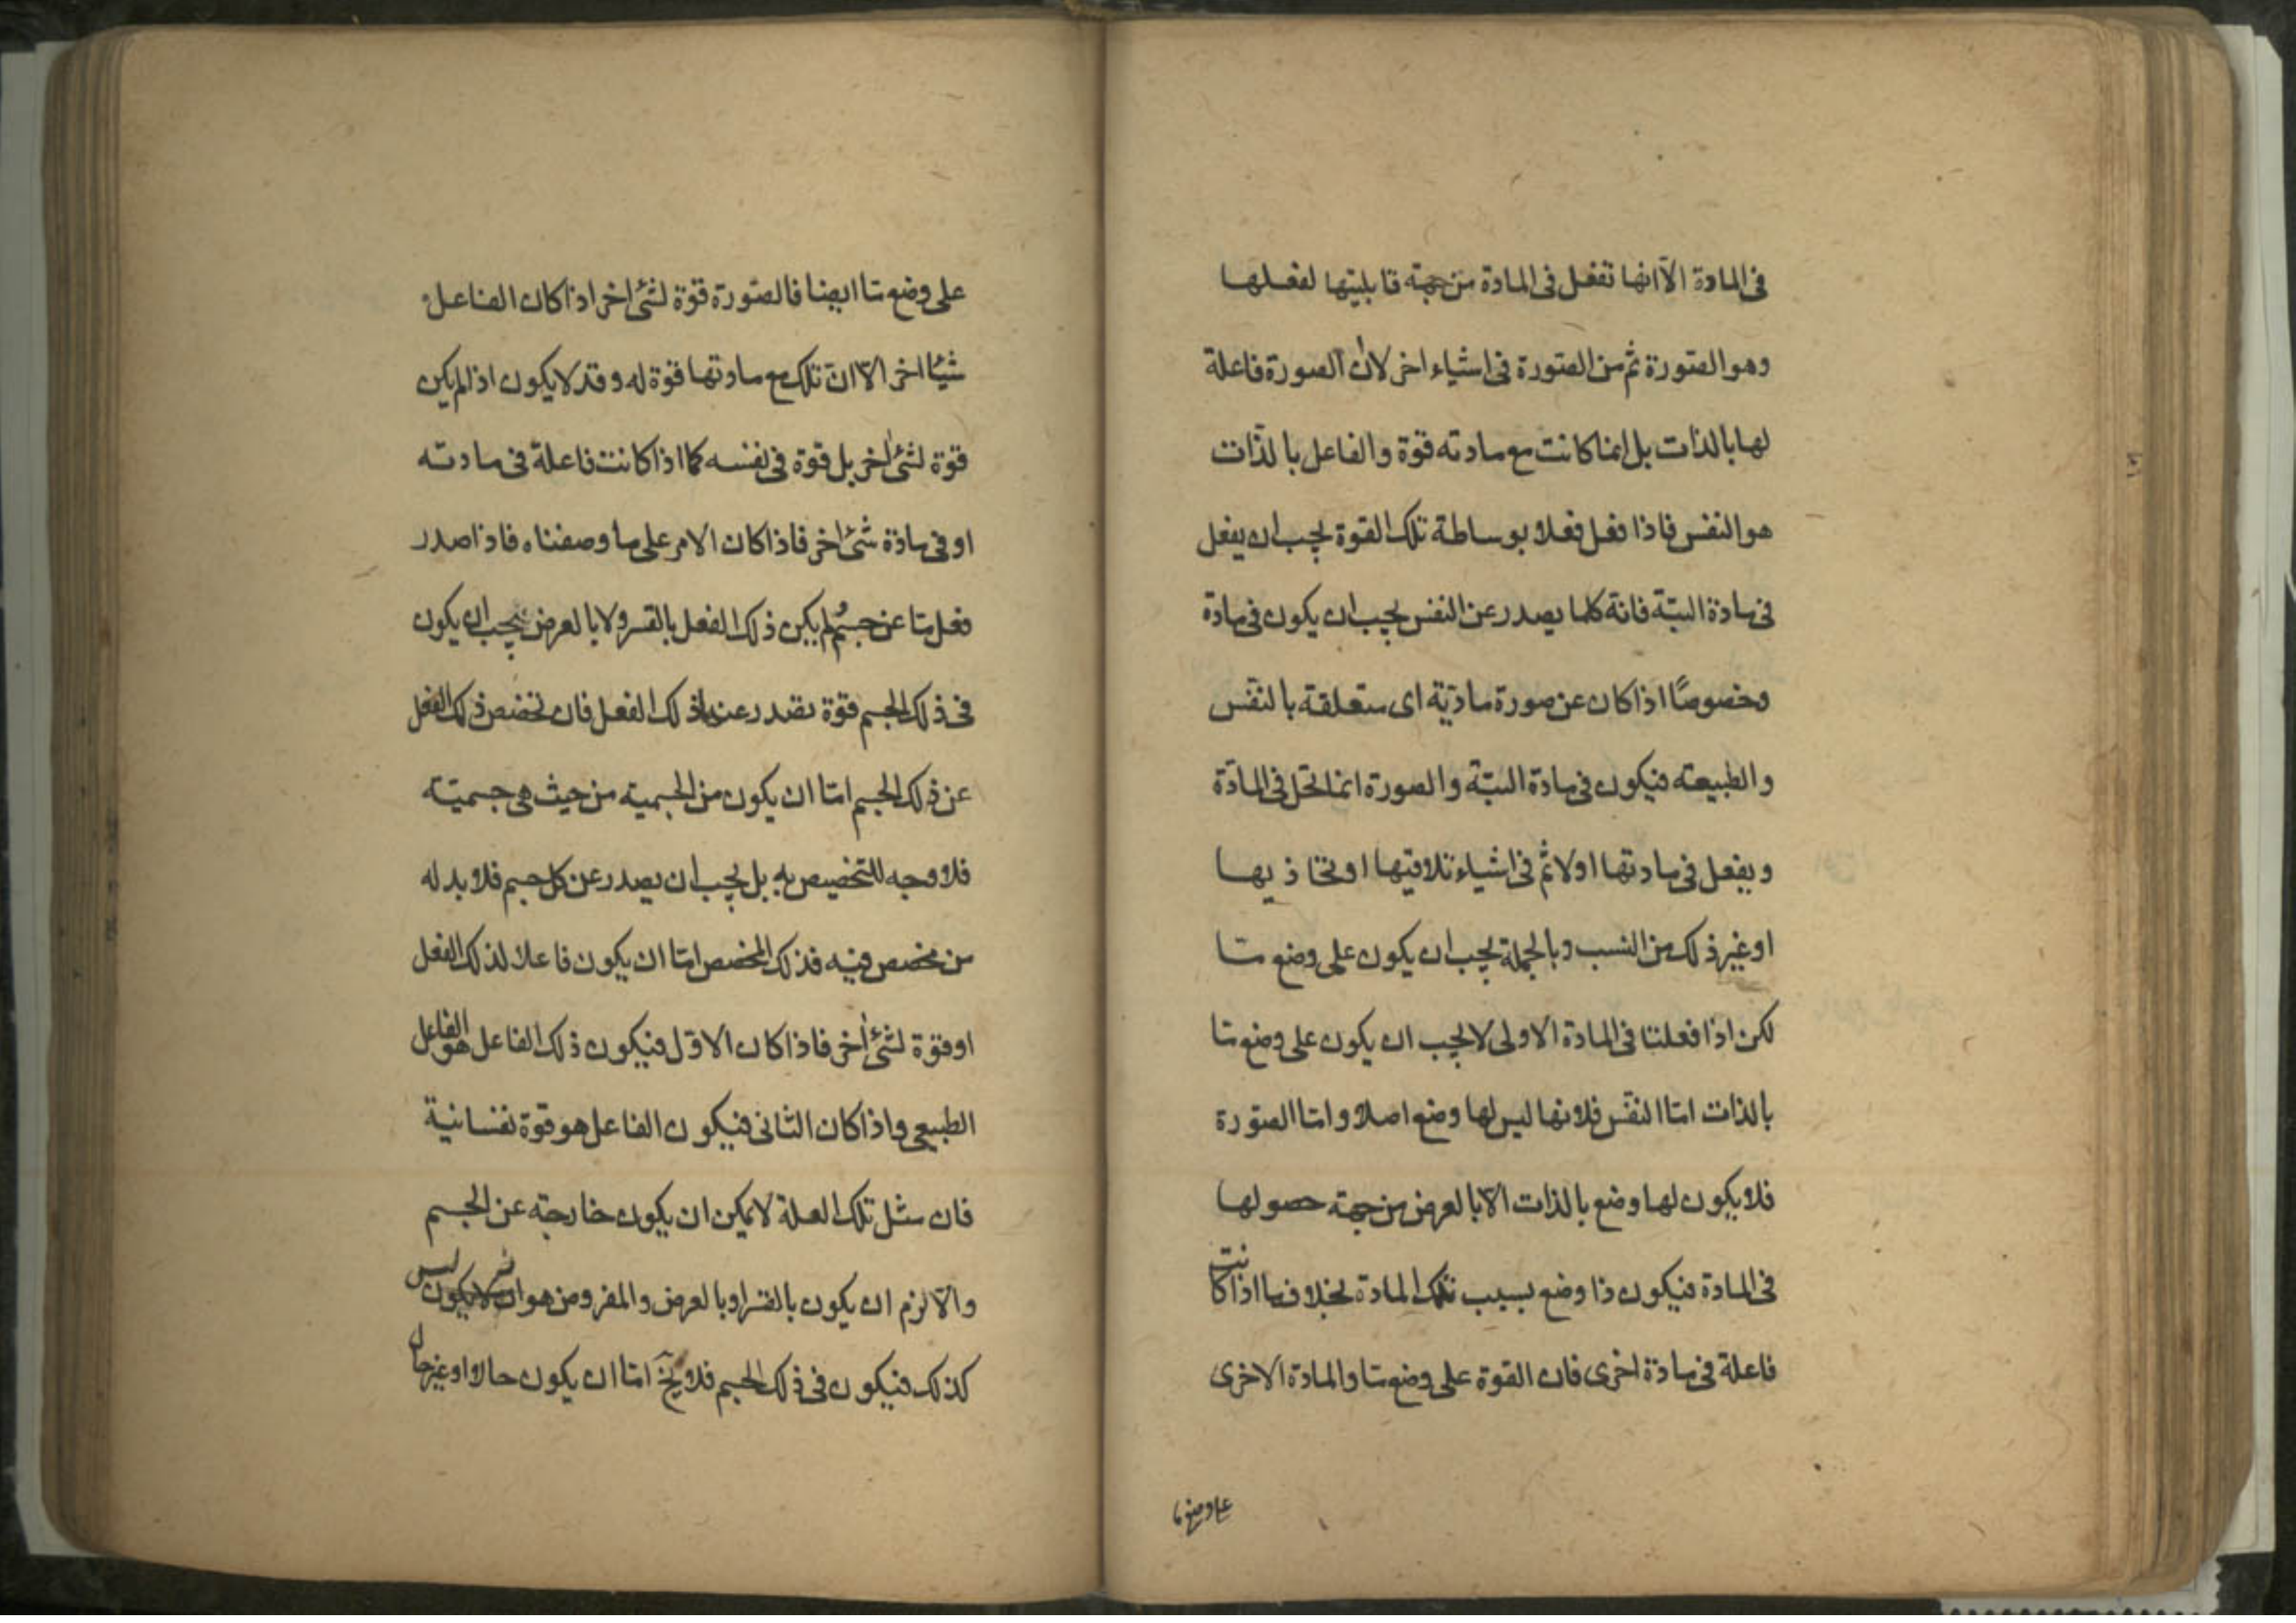 فى المادة الّا انها تفعل فى المادة من جهة قابليتها لفعلها
وهو الصّورة ثم من الصّورة فى اشياء اخر لان الصورة فاعلة
لها بالذات بل انما كانت مع مادته قوة والفاعل بالذّات
هو النفس فاذا فعل فعلا بوساطة تلك القوة يجب ان يفعل
فى مادة البتّة فانه كلما يصدر عن النفس يجب ان يكون فى مادة
وخصوصًا اذا كان عن صورة مادّية اى متعلقة بالنفس
والطبيعته فيكون فى مادة البتّة والصورة انما تحل فى المادّة
ويفعل فى مادتها اولا ثم فى اشياء تلاقيها او تحاذيها
او غير ذلك من النسب وبالجملة يجب ان يكون على وضع ما
لكن اذا فعلتا فى المادة الاولى لا يجب ان يكون على وضع ما
بالذات امّا النفس فلانها ليس لها وضع اصلا وامّا الصّورة
فلا يكون لها وضع بالذات الّا بالعرض من جهة حصولها
فى المادة فيكون ذا وضع بسبب تلك المادة بخلاف ما اذا كانت
فاعلة فى مادة اخرى فان القوة على وضع ما والمادة الاخرى
على وضع ما
على وضع ما ايضا فالصّورة قوّة لشئ اخر اذا كان الفاعل
شيئا اخر الّا انّ تلك مع مادتها قوة له وقد لا يكون اذا لم يكن
قوة لشئ اخر بل قوة فى نفسه كما اذا كانت فاعلة فى مادته
او فى مادة شئ اخر فاذا كان الامر على ما وصفناه فاذا صدر
فعل ما عن جسم ولم يكن ذلك الفعل بالقسر ولا بالعرض يجب ان يكون
فى ذلك الجسم قوّة تصدر عنها ذلك الفعل فان تخصص ذلك الفعل
عن ذلك الجسم امّا ان يكون من الجسمية من حيث هى جسميّة
فلا وجه للتخصيص به بل يجب ان يصدر عن كل جسم فلا بد له
من مخصص فيه فذلك المخصص امّا ان يكون فاعلا لذلك الفعل
او قوة لشئ اخر فاذا كان الاوّل فيكون ذلك الفاعل هو الفاعل
الطبيعى واذا كان الثانى فيكون الفاعل هو قوّة نفسانية
فان مثل تلك العلة لا يمكن ان يكون خارجة عن الجسم
والّا لزم ان يكون بالقسر او بالعرض والمفروض هو انه ليس
كذلك فيكون فى ذلك الجسم فلا يخ امّا ان يكون حالا او غير حال